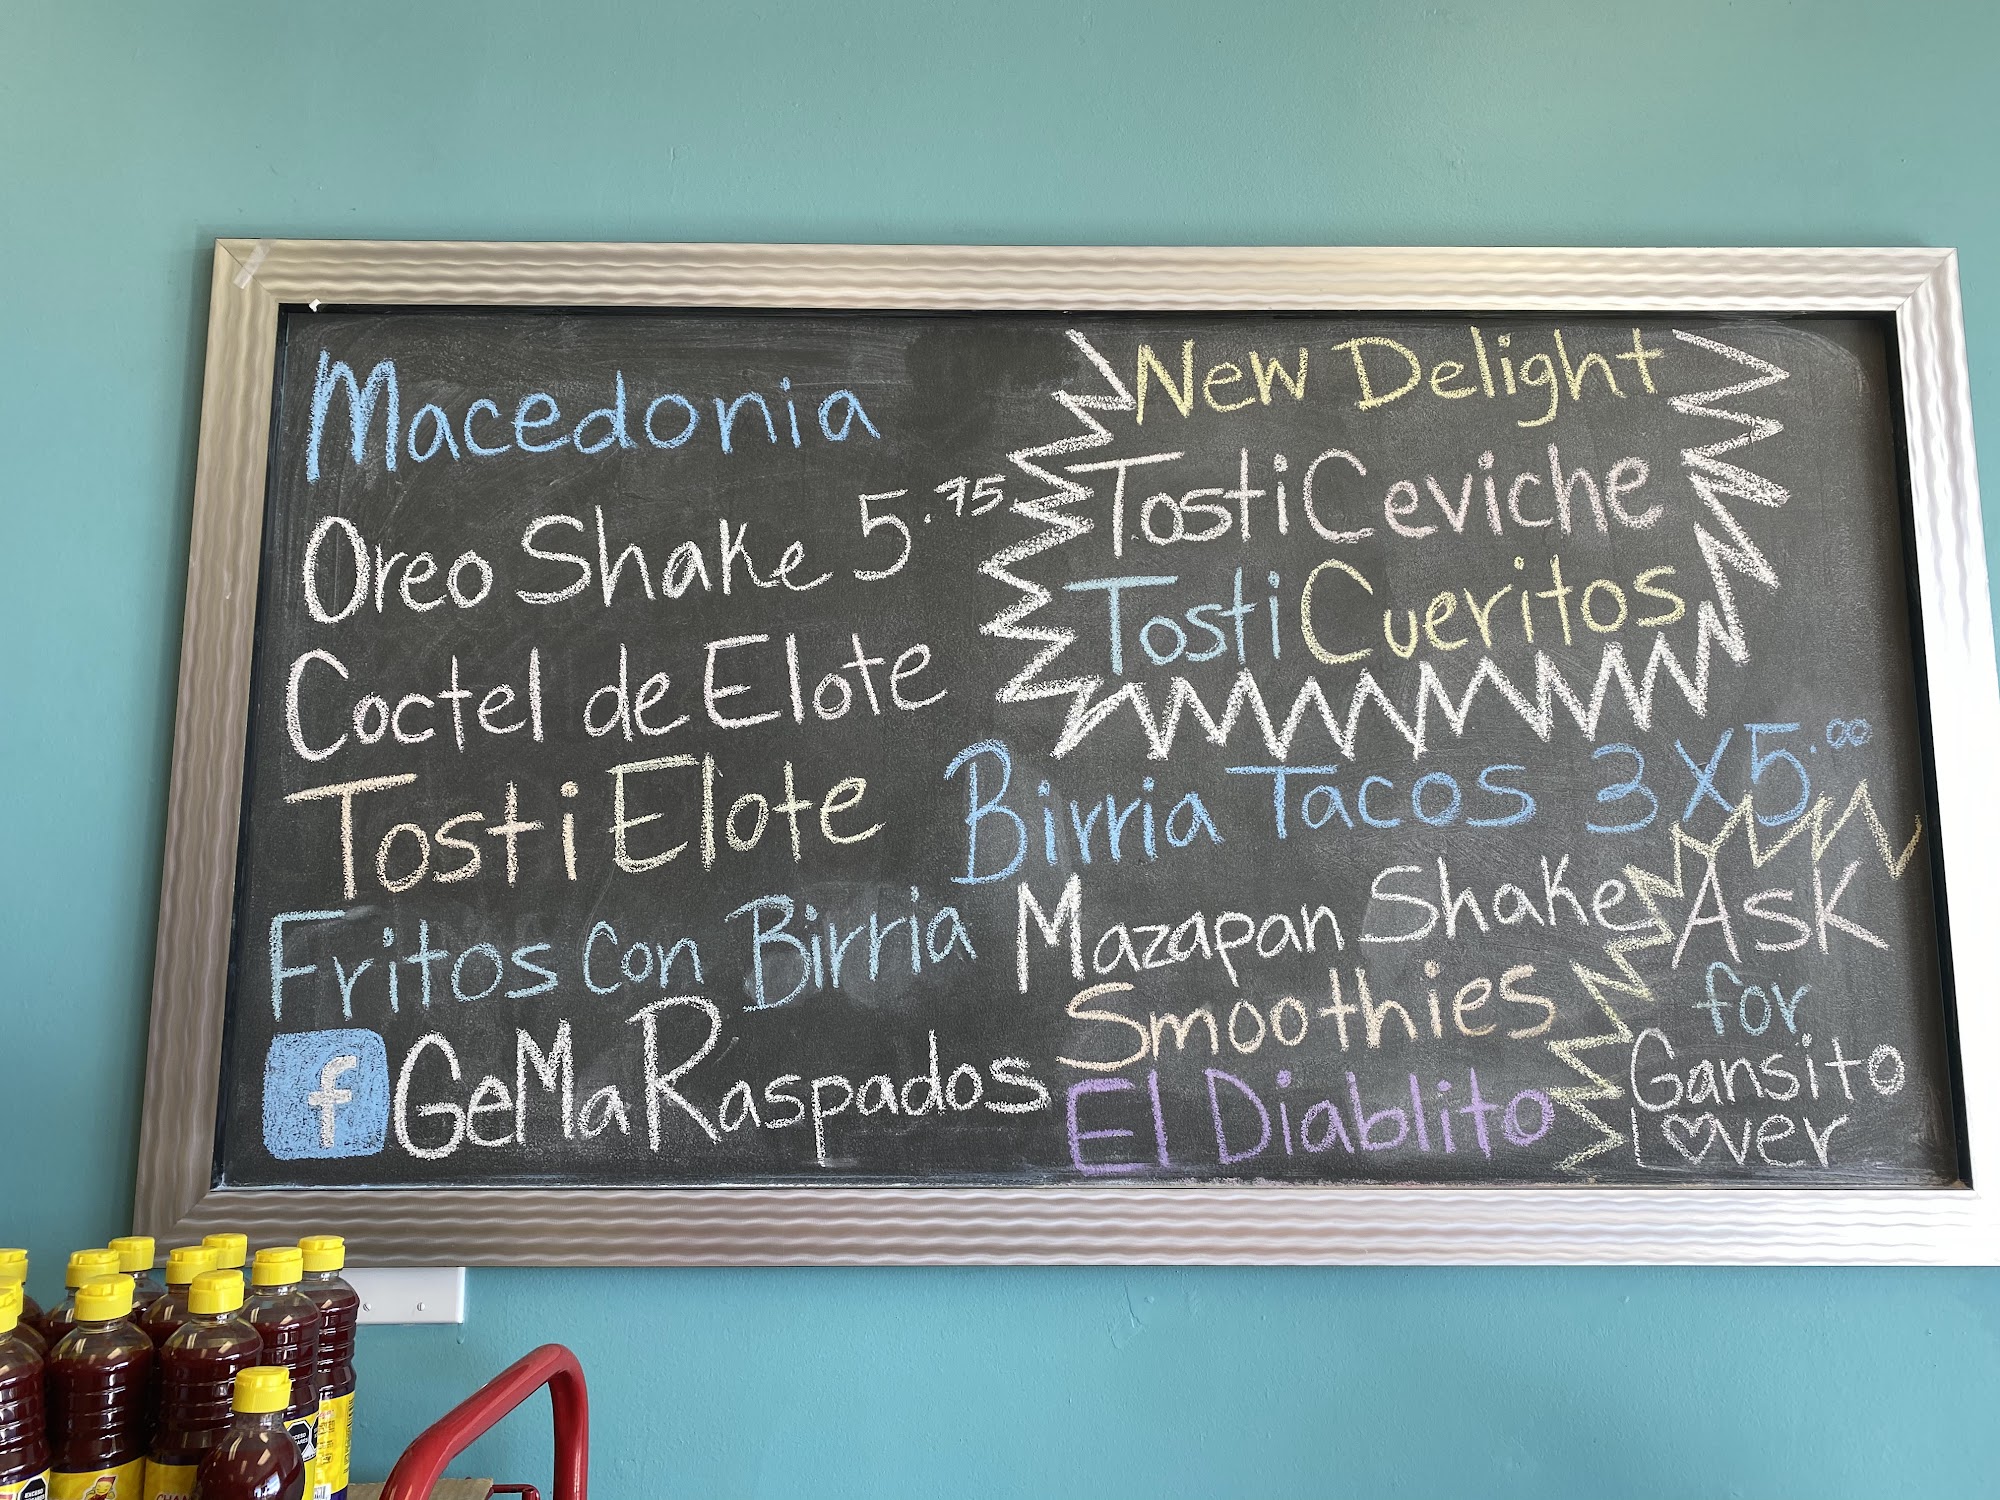 Macedonia
Oreo Shake 5.75
Coctel de Elote
Tosti Elote
Fritos con Birria
f GeMa Raspados
New Delight
Tosti Ceviche
Tosti Cueritos
Birria Tacos 3 X 5.00
Mazapan Shake
Smoothies
El Diablito
Ask
for
Gansito
Lover